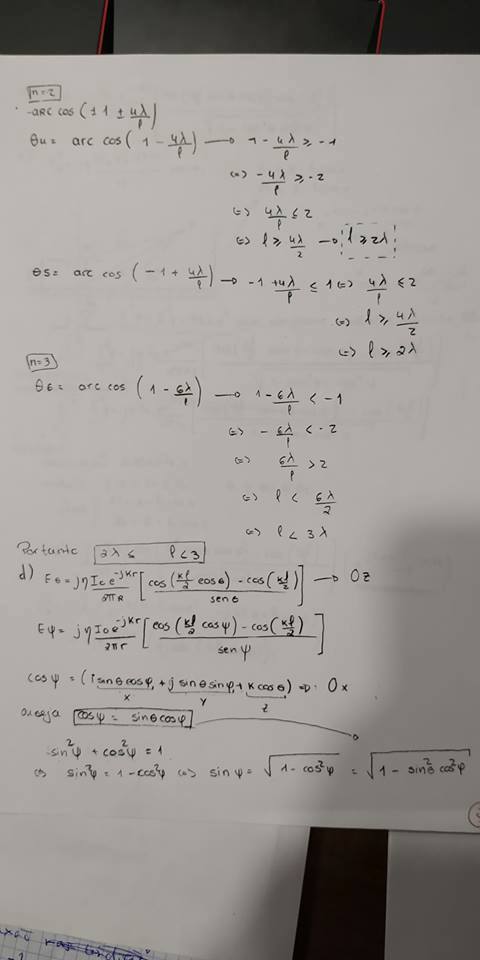 n=2
-arc cos (±1 ± 4λ/l)
θ4 = arc cos (1 - 4λ/l) → 1 - 4λ/l ≥ -1
(=) -4λ/l ≥ -2
(=) 4λ/l ≤ 2
(=) l ≥ 4λ/2 → l ≥ 2λ
θ5 = arc cos (-1 + 4λ/l) → -1 + 4λ/l ≤ 1 (=) 4λ/l ≤ 2
(=) l ≥ 4λ/2
(=) l ≥ 2λ
n=3
θ6 = arc cos (1 - 6λ/l) → 1 - 6λ/l < -1
(=) -6λ/l < -2
(=) 6λ/l > 2
(=) l < 6λ/2
(=) l < 3λ
Portanto 2λ ≤ l < 3
d) Eθ = jη I0 e^-jKr/2πR [cos(Kl/2 cosθ) - cos(Kl/2)/senθ] → Oz
Eψ = jη I0 e^-jKr/2πr [cos(Kl/2 cosψ) - cos(Kl/2)/sen ψ]
cosψ = (i sinθ cosφ + j sinθ sinφ + k cosθ) =D· Ox
x y z
ou seja cosψ = sinθ cosφ
sin²ψ + cos²ψ = 1
(=) sin²ψ = 1 - cos²ψ (=) sin ψ = √(1 - cos²ψ) = √(1 - sin²θ cos²φ)